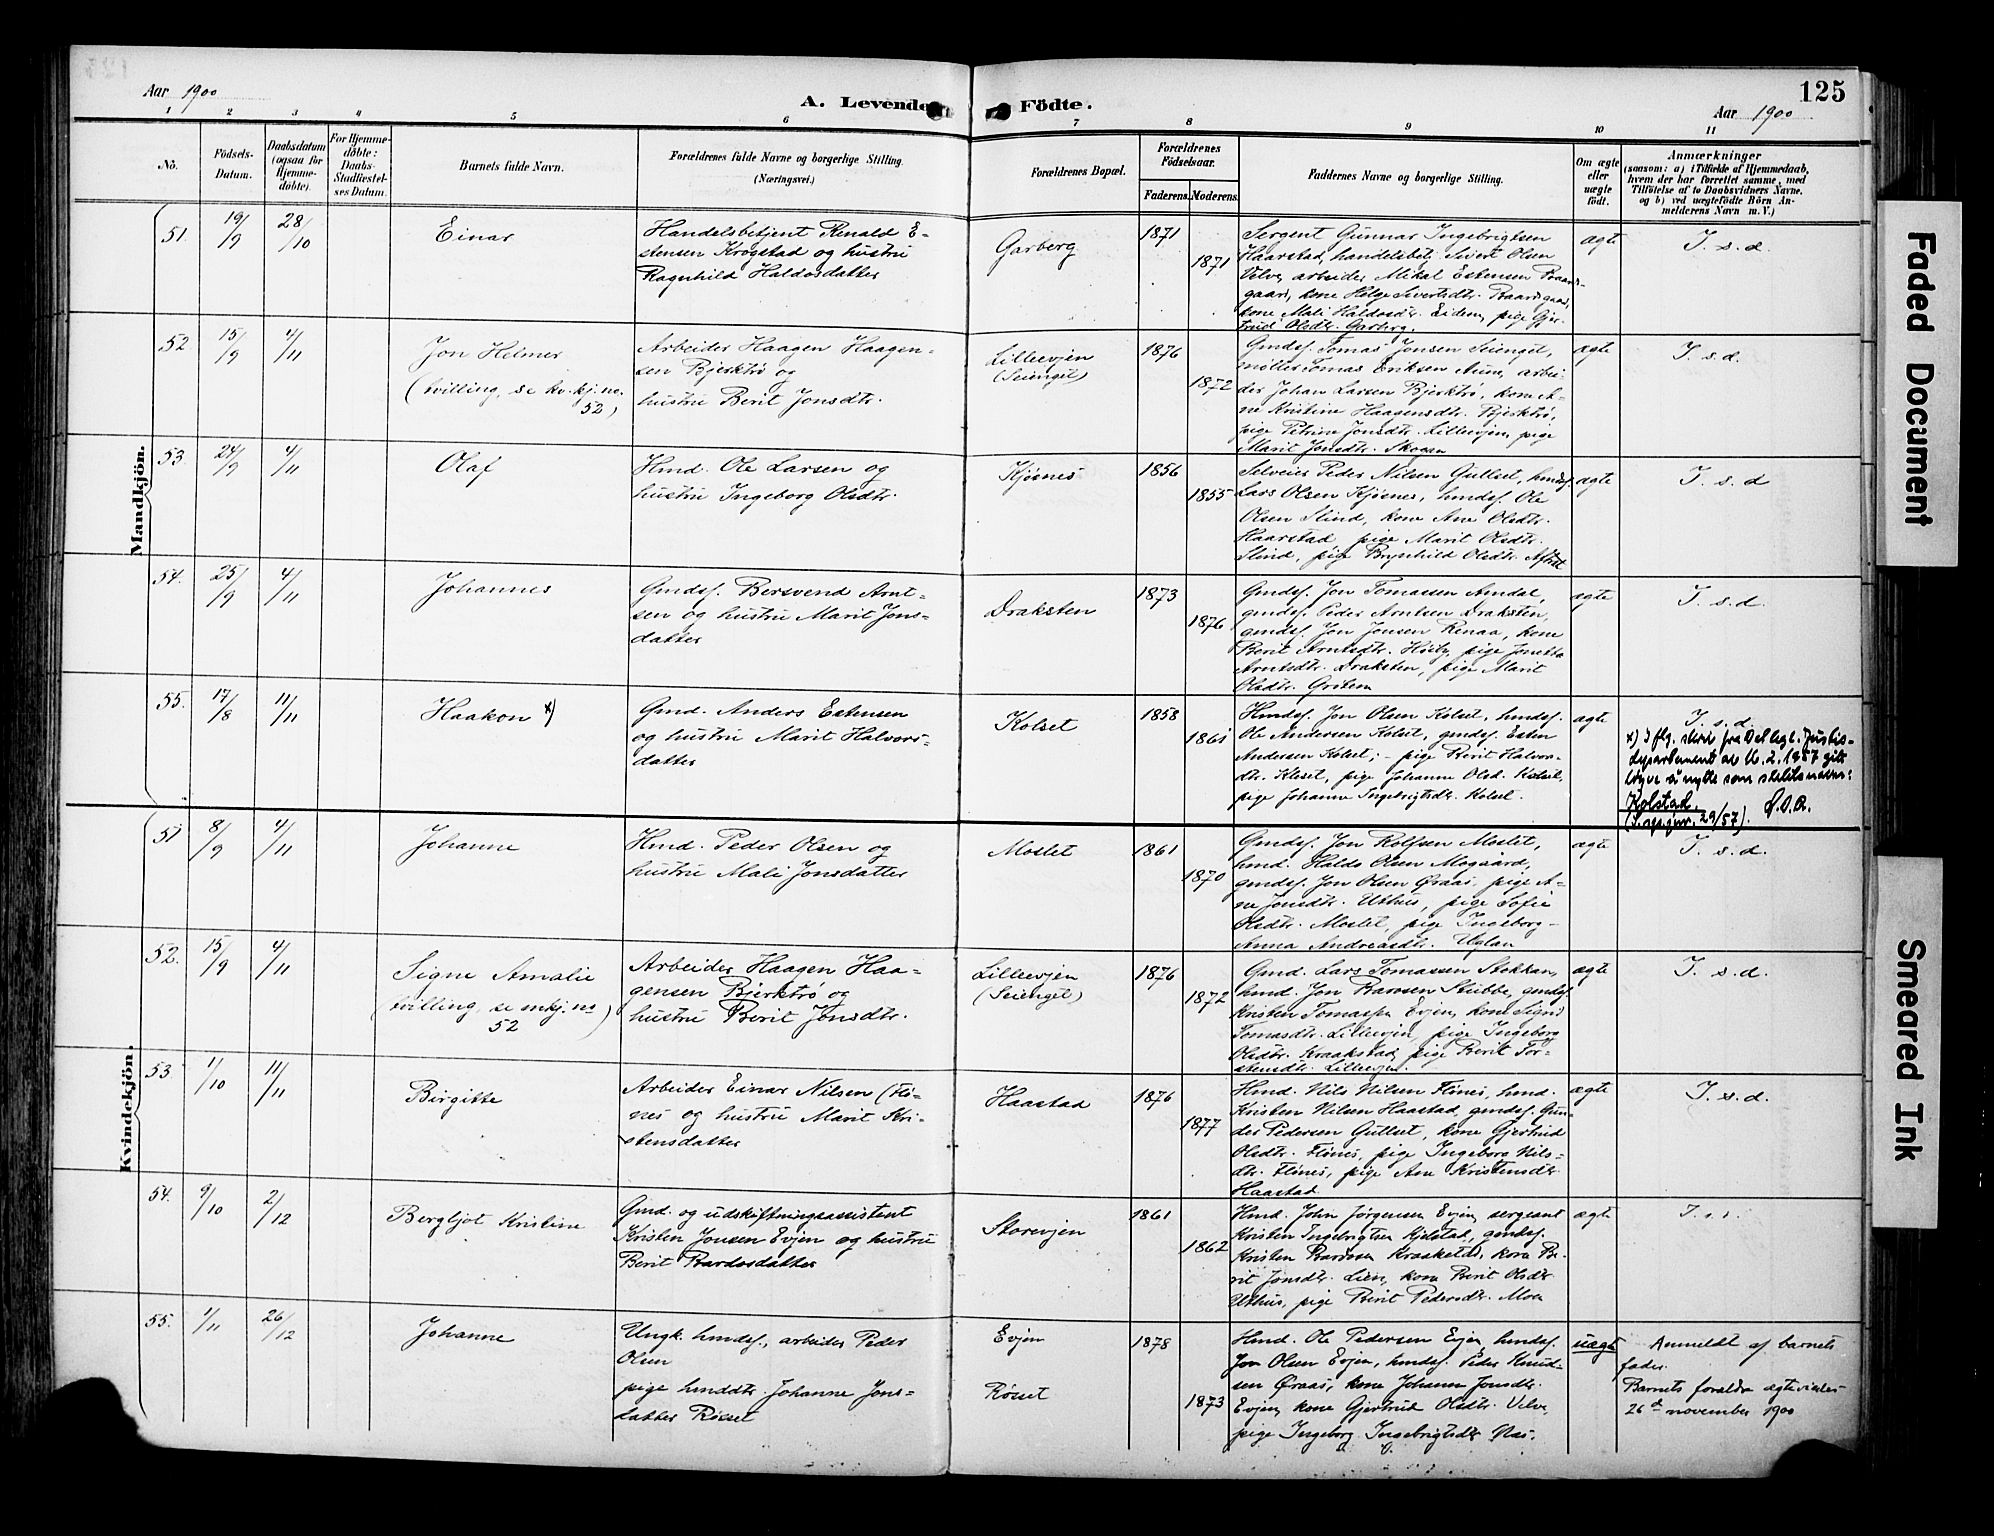 125
Aar 1900
A. Levende Födte.
Aar 1900
1 2 3 4 5 6 7 8 9 10 11
No.
Födsels-Datum.
Daabsdatum (ogsaa for Hjemmedöbte).
For Hjemmedåbte: Daabs-Stadfæstelses Datum.
Barnets fulde Navn.
Forældrenes fulde Navne og borgerlige Stilling.
(Næringsvei.)
Forældrenes Bopæl.
Forældrenes Födselsaar.
Faderens. Moderens.
Faddernes Navne og borgerlige Stilling.
Om ægte eller uægte født.
Anmærkninger
(saasom: a) i Tilfælde af Hjemmedaab, hvem der har forrettet samme, med Tilföielse af to Daabsvidners Navne, og b) ved uægtefödte Börn Anmelderens Navn m. V.)
Mandkjön.
51. 19/9 28/10 Einar
Handelsbetjent Renald E-
stensen Krogstad og hustru
Ragnhild Haldosdatter
Garberg 1871 1871
Sergent Gunnar Ingebrigtsen
Haarstad, handelsbetj. Sivert Olsen
Velve, arbeider Mikal Estensen Baards-
gaard, kone Helge Sivertsdtr. Baardsgaard,
kone Mali Haldosdtr. Eidem, pige Gjer-
trud Olsdtr. Garberg.
ægte I. s. d.
52. 15/9 4/11 Jon Helmer
(tvilling, se kv.kj. no. 52)
Arbeider Haagen Haagen-
sen Bjerktrø og
hustru Berit Jonsdtr.
Lilleevjen
(Seienget)
1876 1872
Gmdsf. Tomas Jonsen Seienget,
møller Tomas Eriksen Aune, arbei-
der Johan Larsen Bjerktrø, kone A-
ne Kristine Haagensdtr. Bjerktrø,
pige Petrine Jonsdtr. Lilleevjen, pige
Marit Jonsdtr. Skogan
ægte I. s. d.
53. 24/9 4/11 Olaf
Hmd. Ole Larsen og
hustru Ingeborg Olsdtr.
Kjøsnes 1856 1855
Selveier Peder Nilsen Gullset, hmdsf.
Lars Olsen Kjøsnes, hmdsf. Ole
Olsen Slind, kone Ane Olsdtr.
Haarstad, pige Marit Olsdtr.
Slind, pige Brynhild Olsdtr. Aftret
ægte I. s. d
54. 25/9 4/11 Johannes
Gmdsf. Bersvend Arnt-
sen og hustru Marit Jons-
datter
Draksten 1873 1876
Gmdsf. Jon Tomassen Amdal,
gmdsf. Peder Arntsen Draksten,
gmdsf. Jon Jonsen Renaa, kone
Berit Arntsdtr. Høiby, pige Jonetta
Arntsdtr. Draksten, pige Marit
Olsdtr. Grøtem
ægte I. s. d.
55. 17/8 11/11 Haakon x)
Gmd. Anders Estensen
og hustru Marit Halvors-
datter
Kolset 1858 1861
Hmdsf. Jon Olsen Kolset, hmdsf.
Ole Andersen Kolset, gmdsf. Esten
Andersen Kolset, pige Berit Halvors-
dtr. Kleset, pige Johanne Olsd. Kolset,
pige Johanne Ingebrigtsdtr. Kolset.
ægte I. s. d.
x) I flg. skriv fra Det kgl. Justis-
departement av 16.2.1957 gitt
løyve å nytte som slektsnavn:
Kolstad.
29/57).
Kvindekjön.
51 8/9 4/11 Johanne
Hmd. Peder Olsen og
hustru Mali Jonsdatter
Moslet 1861 1870
Gmdsf. Jon Rolfsen Moslet,
hmd. Haldo Olsen Mogaard,
gmdsf. Jon Olsen Øraas, pige A-
ne Jonsdtr. Uthus, pige Sofie
Olsdtr. Moslet, pige Ingeborg-
Anna Andreasdtr. Uglan
ægte I. s. d.
52. 15/9 4/11 Signe Amalie
(tvilling, se mkj. no 52)
Arbeider Haagen Haa-
gensen Bjerktrø og
hustru Berit Jonsdtr.
Lilleevjen
(Seienget)
1876 1872
Gmd. Lars Tomassen Stokkan,
hmd. Jon Barosen Stubbe, gmdsf.
Kristen Tomassen Evjen, kone Sigrid
Tomasdtr. Lilleevjen, pige Ingeborg
Olsdtr. Kraakstad, pige Berit Tor-
stensdtr. Lilleevjen.
ægte I. s. d.
53. 1/10 11/11 Birgitte
Arbeider Einar Nilsen (Flø-
nes og hustru Marit Kri-
stensdatter
Haastad 1876 1877
Hmd. Nils Nilsen Flønes, hmd.
Kristen Nilsen Haastad, gmdsf. Gun-
der Pedersen Gullset, kone Gjertrud
Olsdtr. Flønes, pige Ingeborg Nils-
dtr. Flønes, pige Ane Kristensdtr
Haastad
ægte I. s. d.
54. 9/10 2/12 Bergljot Kristine
Gmd. og udskiftningsassistent
Kristen Jonsen Evjen og hustru
Berit Bardosdatter
Storevjen 1861 1862
Hmd. John Jørgensen Evjen, sergeant
Kristen Ingebrigtsen Kjelstad, gmdsf.
Kristen Bardosen, kone Be-
rit Jonsdtr. Lien, kone Berit Olsdtr
Uthus, pige Berit Pedersdtr. Moen
ægte I. s.
55. 1/11 26/12 Johanne
Ungk. hmdsf., arbeider Peder
Olsen
pige hmddtr. Johanne Jons-
datter Røset
Evjen
Røset
1878 1873
Hmd. Ole Pedersen Evjen, hmdsf.
Jon Olsen Evjen, hmdsf. Peder Knud-
sen Øraas, kone Johanna Jonsdtr.
Evjen, kone Gjertrud Olsdtr. Velve,
pige Ingeborg Ingebrigtsdtr. Næs.
uægte
Anmeldt af barnets
fader.
Barnets forældre ægteviedes
26d november 1900
Faded Document
Smeared Ink